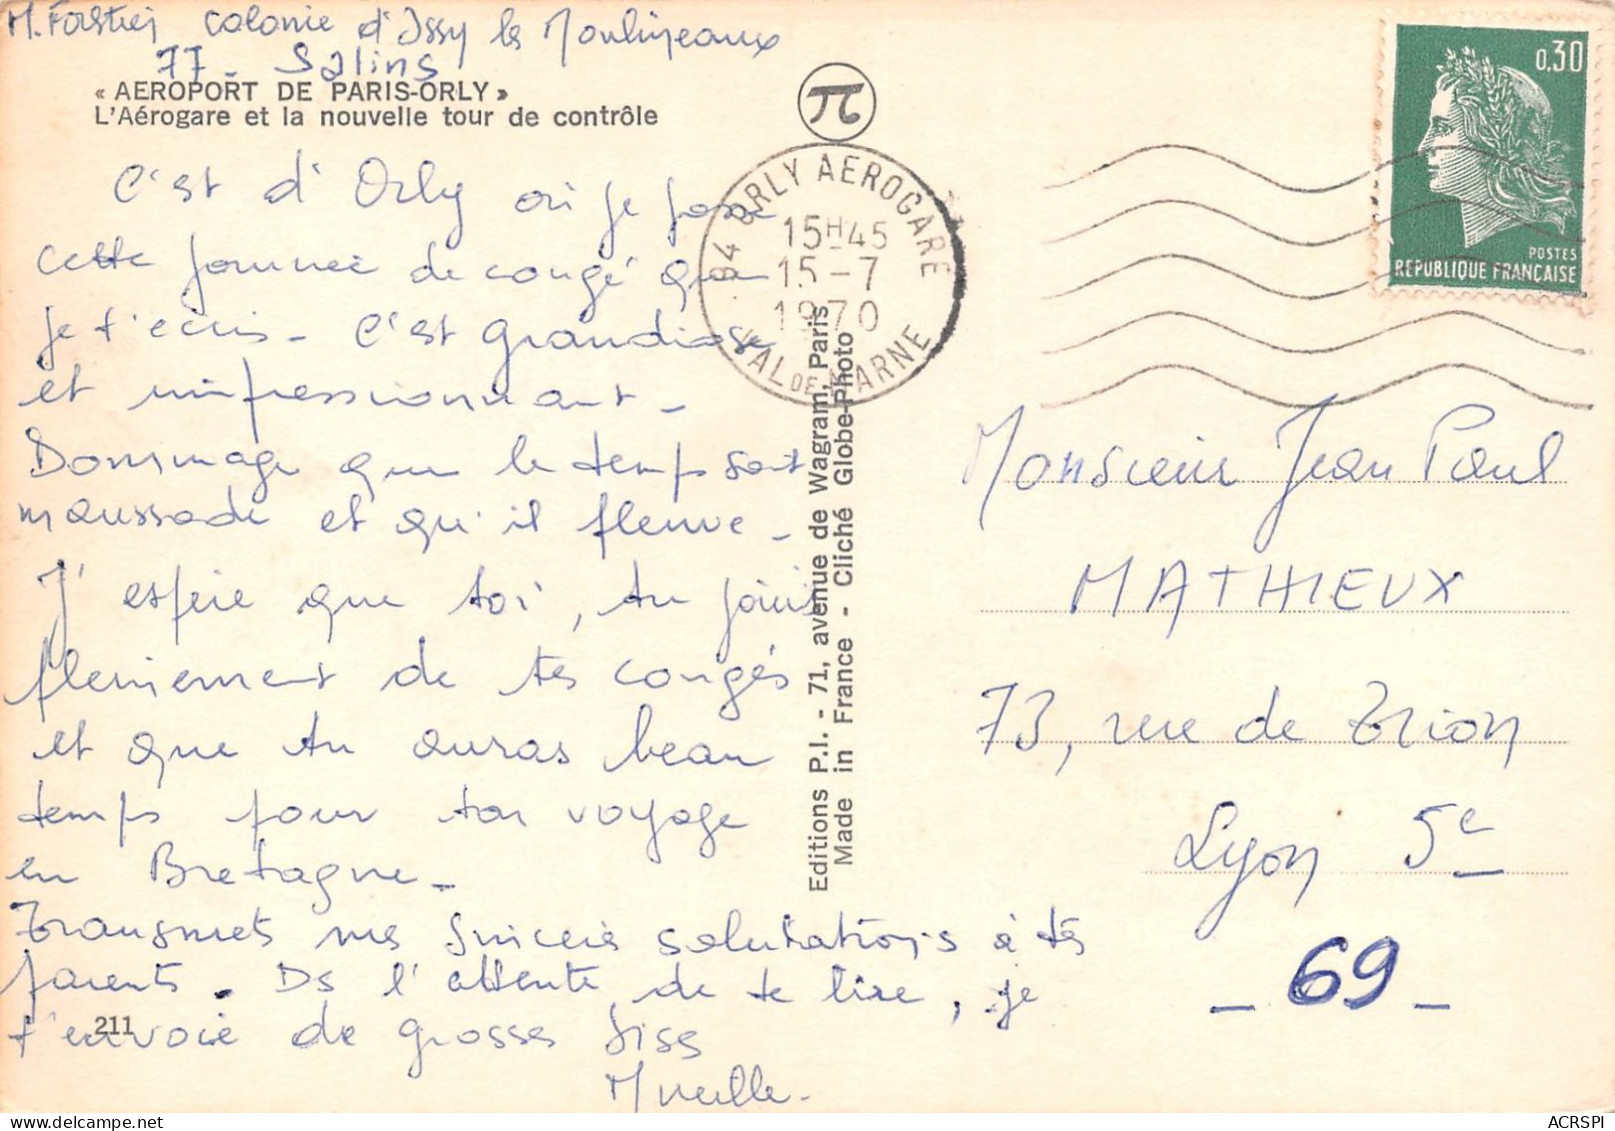 M. Forstier colonie d'Issy les Moulineaux
77 - Salins
« AEROPORT DE PARIS-ORLY »
L'Aérogare et la nouvelle tour de contrôle
C'est d'Orly où je passe
cette journée de congé que
je t'écris - C'est grandiose
et impressionnant -
Dommage que le temps soit
maussade et qu'il pleuve -
J'espère que toi, tu jouis
pleinement de tes congés
et que tu auras beau
temps pour ton voyage
en Bretagne -
Transmets mes sincères salutations à tes
parents. Ds l'attente de te lire, je
t'envoie de grosses bises
Mireille.
211
π
94 ORLY AEROGARE
15H45
15-7
1970
VAL DE MARNE
Editions P.I. - 71, avenue de Wagram, Paris
Made in France - Cliché Globe-Photo
0,30
POSTES
REPUBLIQUE FRANÇAISE
Monsieur Jean Paul
MATHIEUX
73, rue de Trion
Lyon 5e
- 69 -
ACRSPI